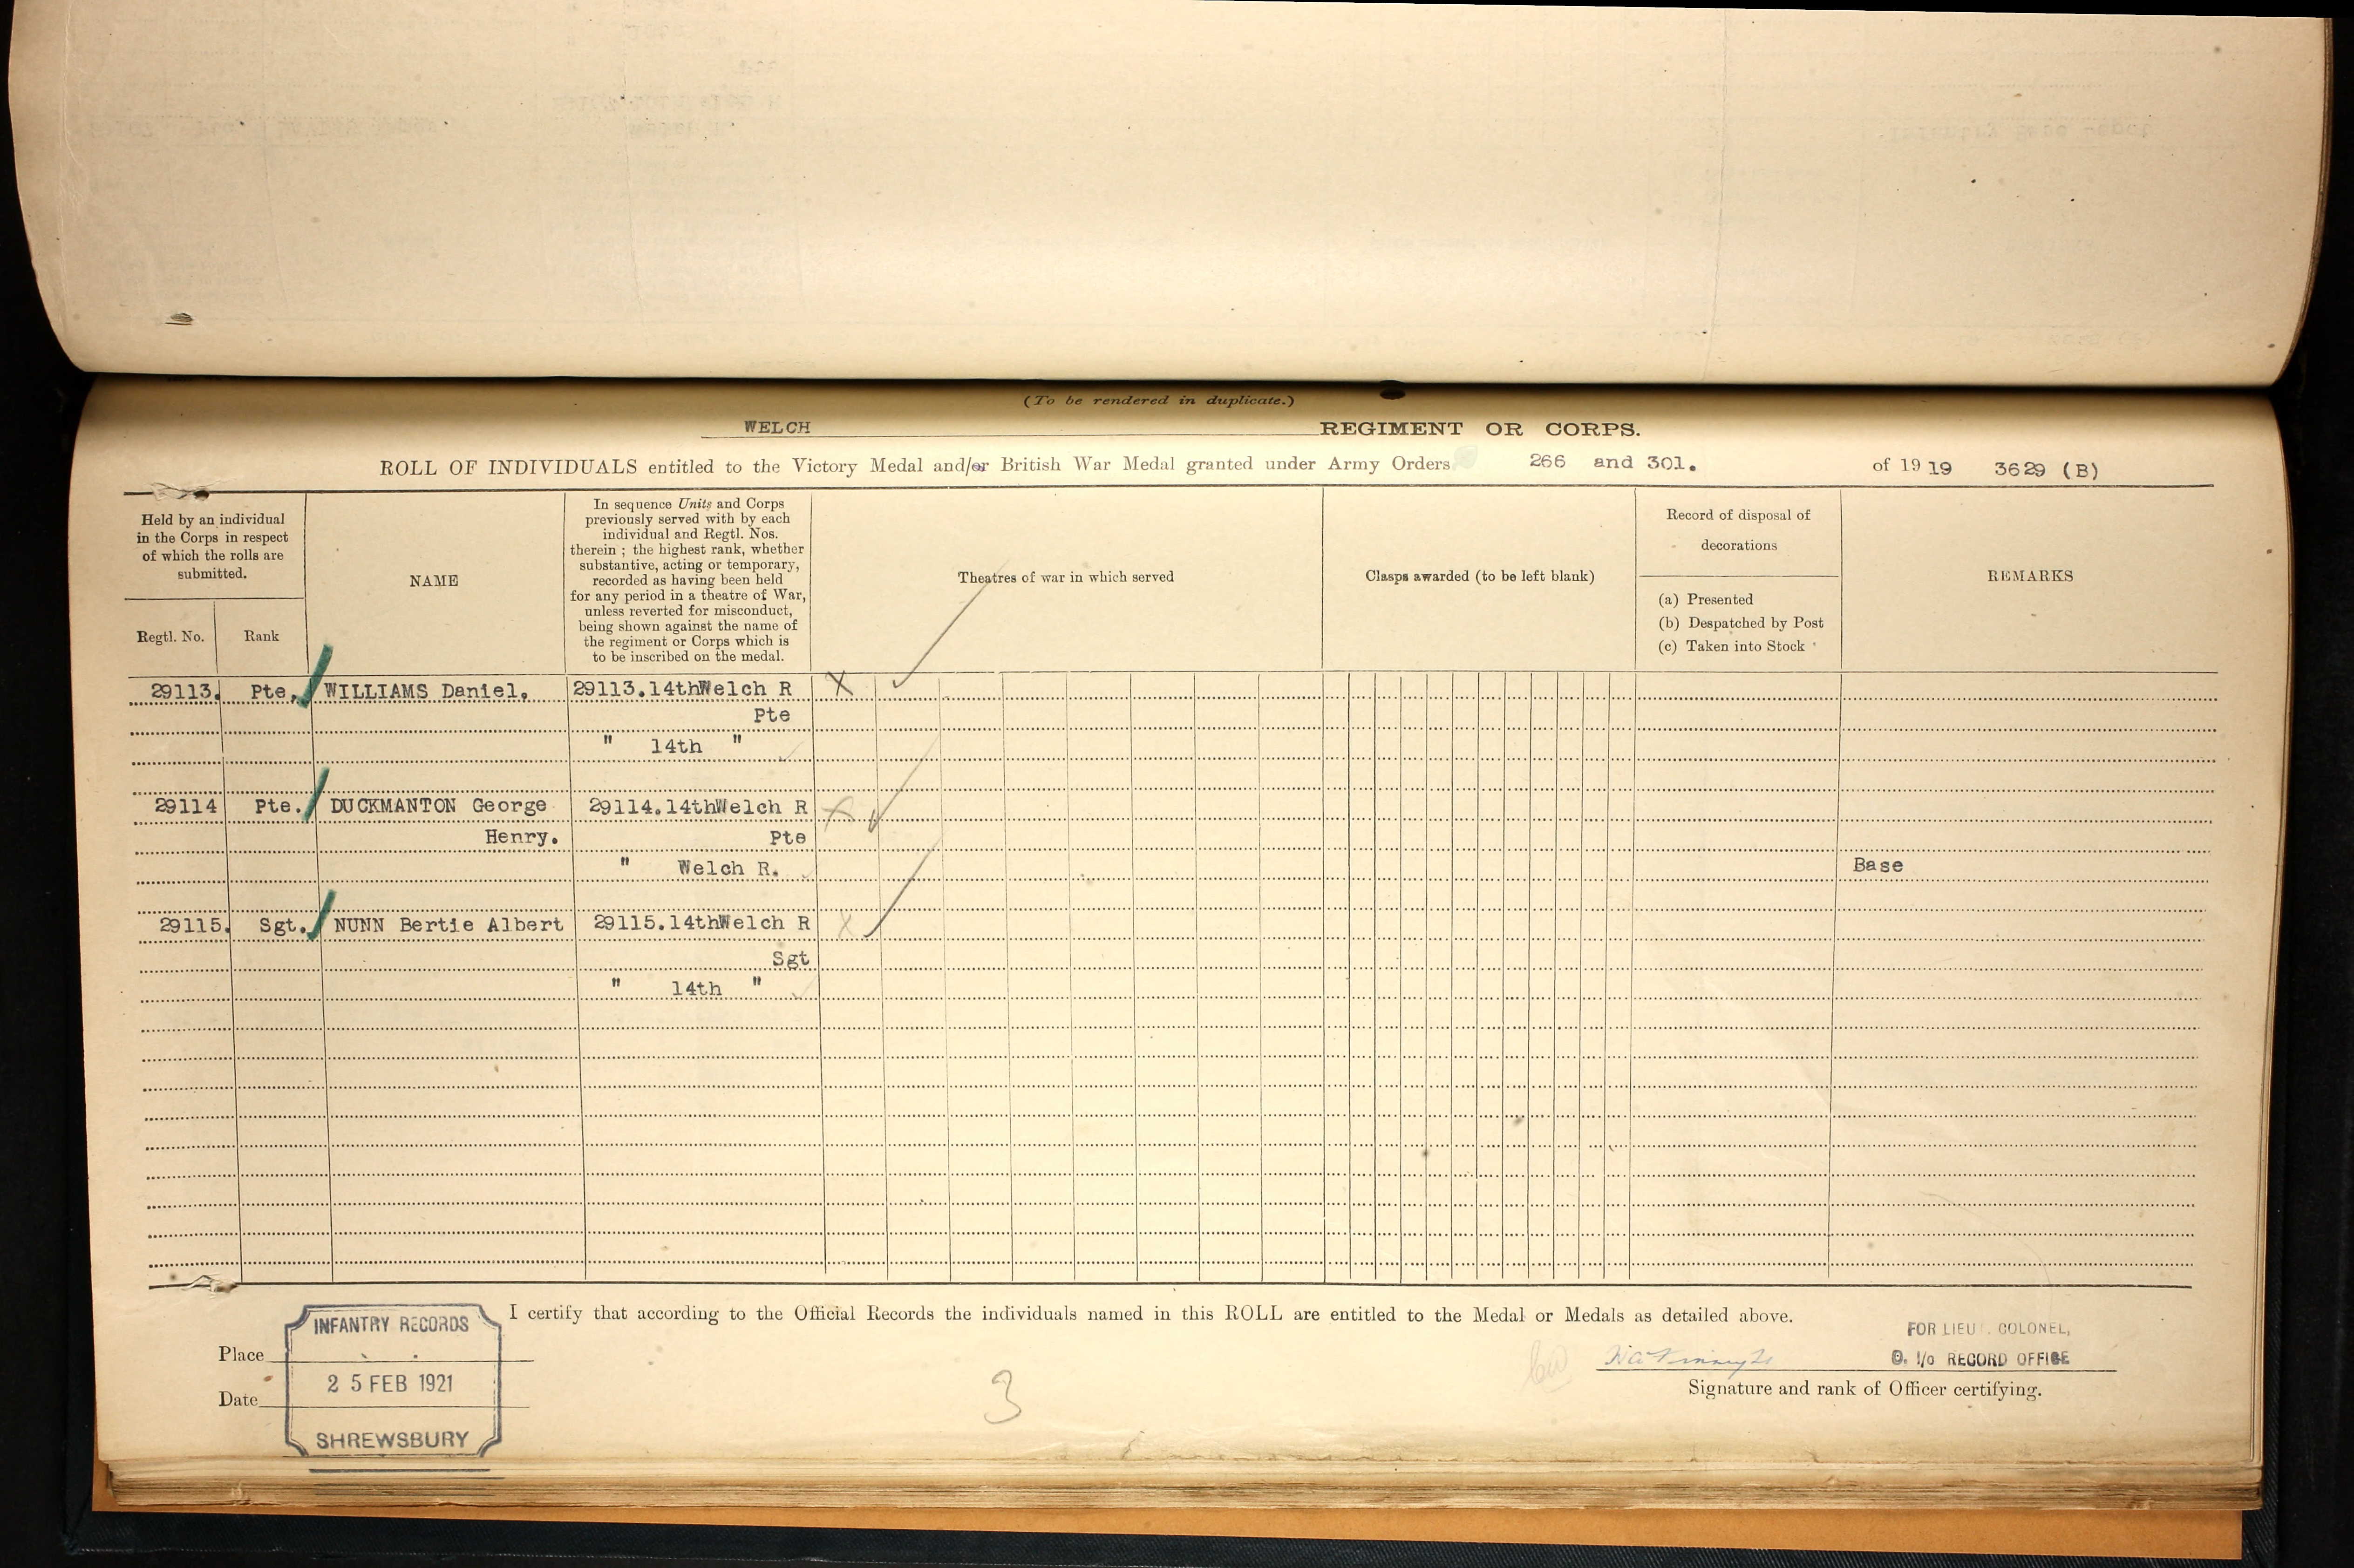 (To be rendered in duplicate.)
WELCH REGIMENT OR CORPS.
ROLL OF INDIVIDUALS entitled to the Victory Medal and/or British War Medal granted under Army Orders 266 and 301. of 1919 3629 (B)
Held by an individual
in the Corps in respect
of which the rolls are
submitted.
Regtl. No. Rank
NAME
In sequence Units and Corps
previously served with by each
individual and Regtl. Nos.
therein ; the highest rank, whether
substantive, acting or temporary,
recorded as having been held
for any period in a theatre of War,
unless reverted for misconduct,
being shown against the name of
the regiment or Corps which is
to be inscribed on the medal.
Theatres of war in which served
Clasps awarded (to be left blank)
Record of disposal of
decorations
(a) Presented
(b) Despatched by Post
(c) Taken into Stock
REMARKS
29113. Pte. WILLIAMS Daniel. 29113.14thWelch R X
Pte
" 14th "
29114 Pte. DUCKMANTON George 29114.14thWelch R X
Henry. Pte
" Welch R. Base
29115. Sgt. NUNN Bertie Albert 29115.14thWelch R X
Sgt
" 14th "
I certify that according to the Official Records the individuals named in this ROLL are entitled to the Medal or Medals as detailed above.
INFANTRY RECORDS
25 FEB 1921
SHREWSBURY
Place
Date
3
FOR LIEUT. COLONEL,
O. I/c RECORD OFFICE
Signature and rank of Officer certifying.